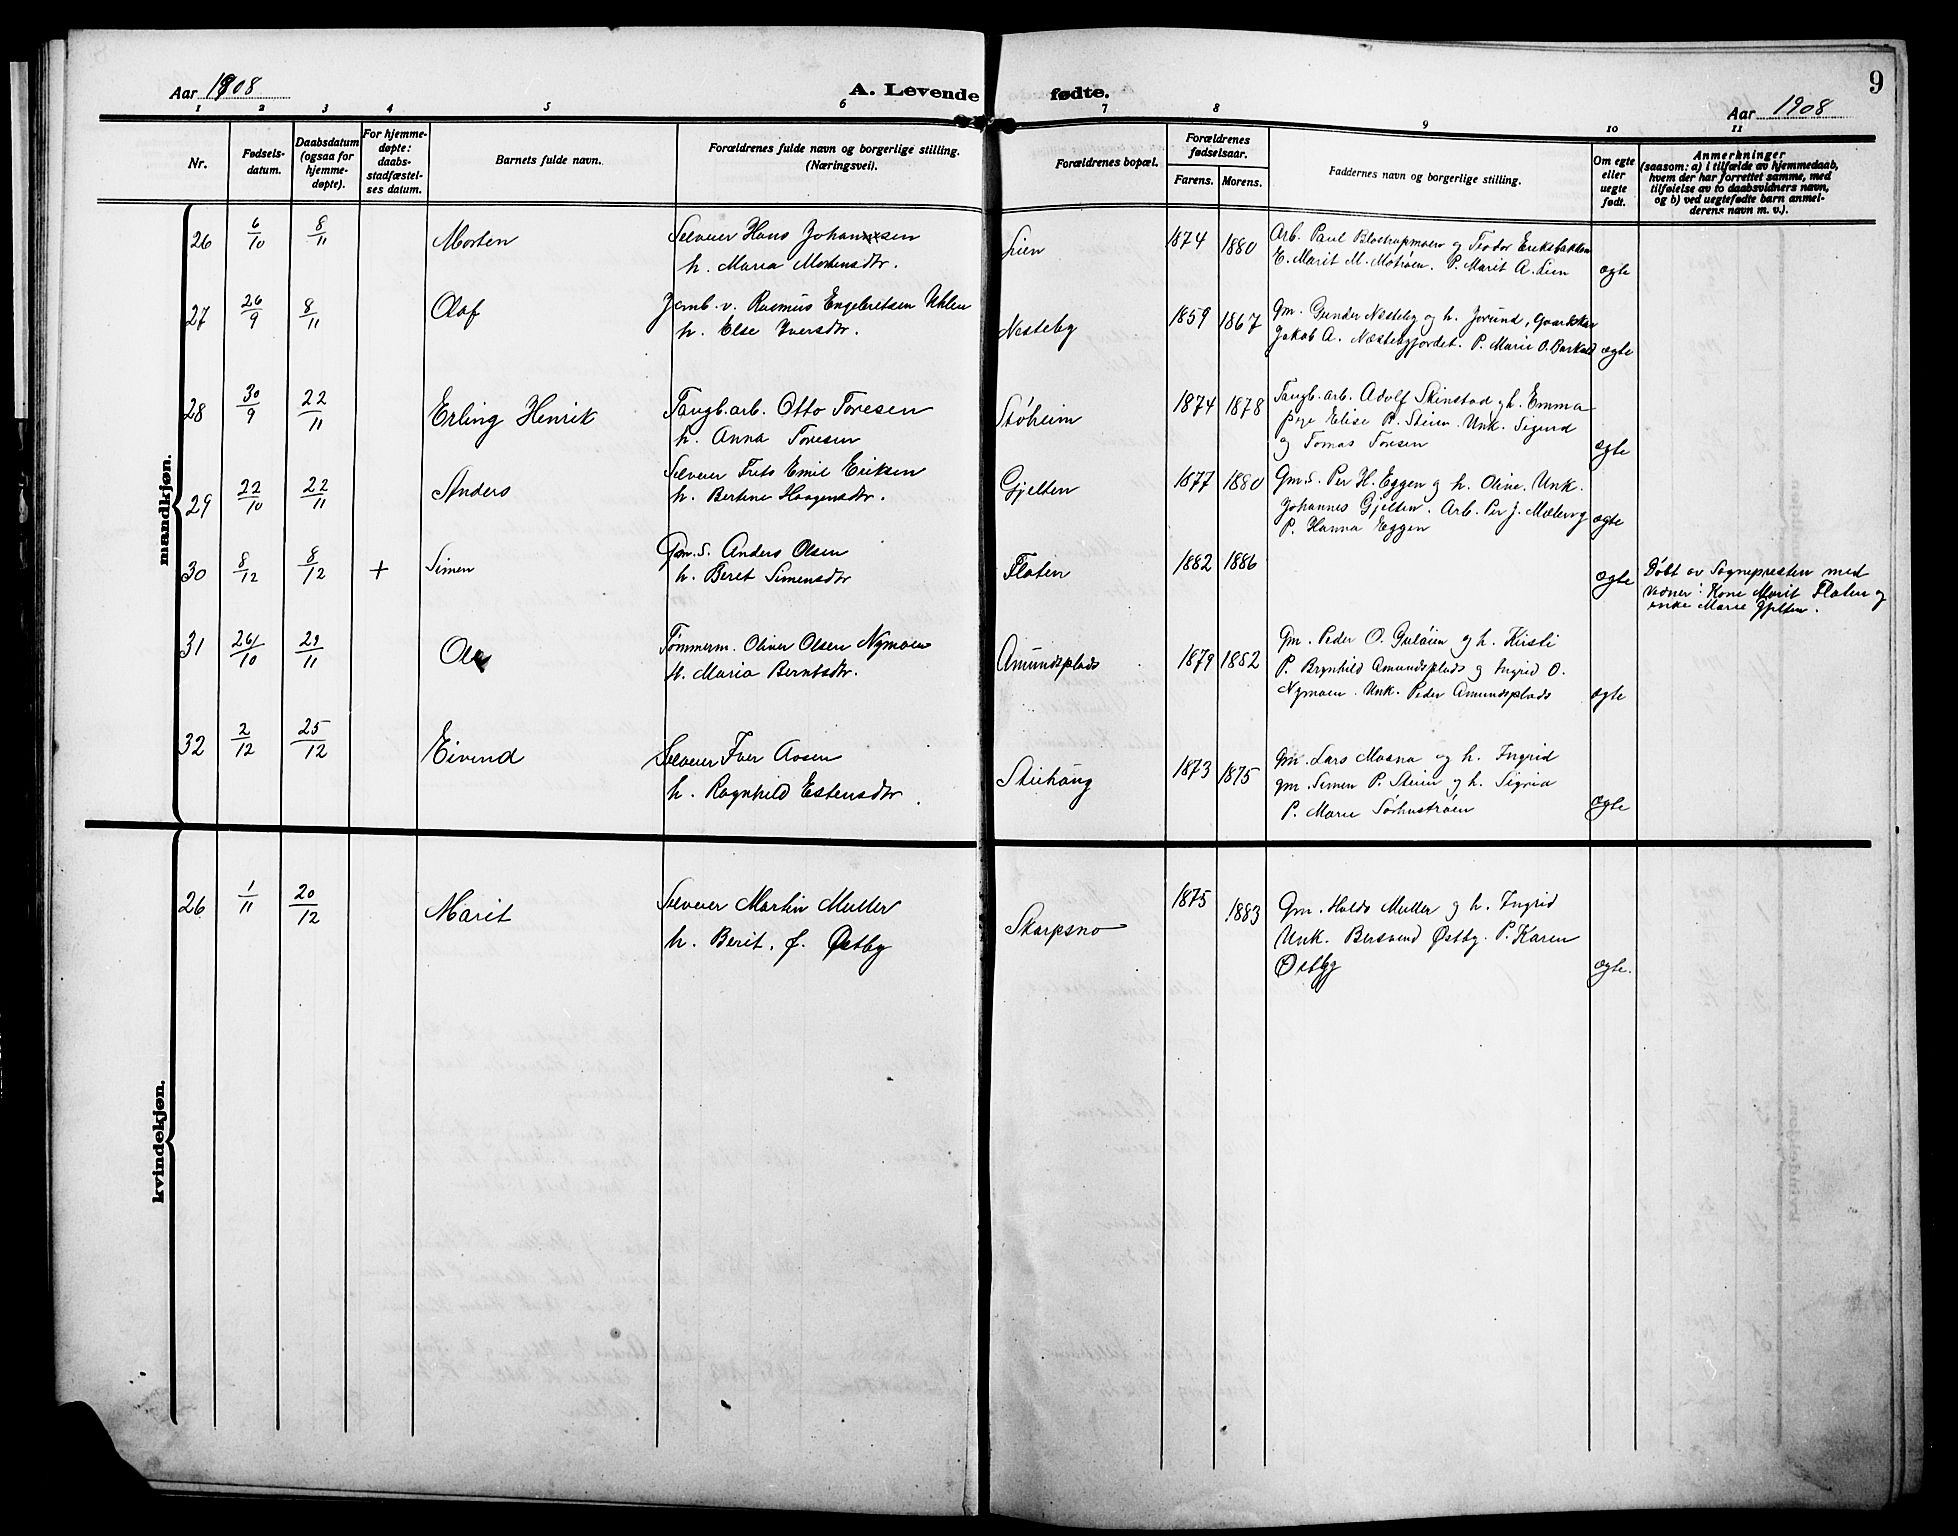 9
Aar 1908
A. Levende fødte.
Aar 1908
1 2 3 4 5 6 7 8 9 10 11
Nr.
Fødsels-
datum.
Daabsdatum
(ogsaa for
hjemme-
døpte).
For hjemme-
døpte:
daabs-
stadfæstel-
ses datum.
Barnets fulde navn.
Forældrenes fulde navn og borgerlige stilling.
(Næringsvei).
Forældrenes bopæl.
Forældrenes
fødselsaar.
Farens. Morens.
Faddernes navn og borgerlige stilling.
Om egte
eller
uegte
født.
Anmerkninger
(saasom: a) i tilfælde av hjemmedaab,
hvem der har forrettet samme, med
tilføielse av to daabsvidners navn,
og b) ved uegtefødte barn anmel-
derens navn m. v.).
mandkjøn.
26 6/10 8/11 Morten Selveier Hans Johansen Lien 1874 1880 Arb. Paul og Teodor Eriksbakken
h. Maria Mortensdtr. E. Marit M. Motrøen. P. Marit A. Lien ægte
27 26/9 8/11 Olaf Jernb. v. Rasmus Engebretsen Uhlen Nesteby 1859 1867 Gm. Gunder Næsteby og h. Jorund,
h. Else Iversdtr. Jakob A. Næstebyjordet. P. Marie O. Barkald ægte
28 30/9 22/11 Erling Henrik Tangb. arb. Otto Toresen Støheim 1874 1878 Tangb. arb. Adolf Skinstad og h. Emma
h. Anna Toresen Pige Elise P. Steien. Unk. Sigurd
og Tomas Toresen ægte
29 22/10 22/11 Anders Selveier Frets Emil Eriksen Gjelten 1877 1880 Gm.s. Per H. Eggen og h. Oline. Unk.
h. Bertine Haagensdtr. Johannes Gjelten. Arb. Per J. Mæleng
P. Hanna Eggen ægte
30 8/12 8/12 + Simen Gm.s. Anders Olsen Floten 1882 1886 ægte Døbt av Sognepresten med
h. Beret Simensdtr vidner: Kone Marit Floten og
enke Marie Gjelten.
31 26/10 29/11 Ole Tømmerm. Oliver Olsen Nymoen Amundsplads 1879 1882 Gm. Peder O. Guløien og h. Kirsti
h. Maria Berntsdtr. P. Brynhild Amundsplads og Ingrid O.
Nymoen. Unk. Peder Amundsplads ægte
32 2/12 25/12 Eivind Selveier Iver Aasen Steihaug 1873 1875 Gm. Lars Mosna og h. Ingrid
h. Ragnhild Estensdtr. gm. Simen P. Steien og h. Sigrid
P. Marie Sørhustrøen ægte
kvindekjøn.
26 1/11 20/12 Marit Selveier Martin Muller Skarpsno 1875 1883 Gm. Halds Muller og h. Ingrid
h. Berit, f. Østby Unk. Bersvend Østby. P. Karen
Østby ægte.